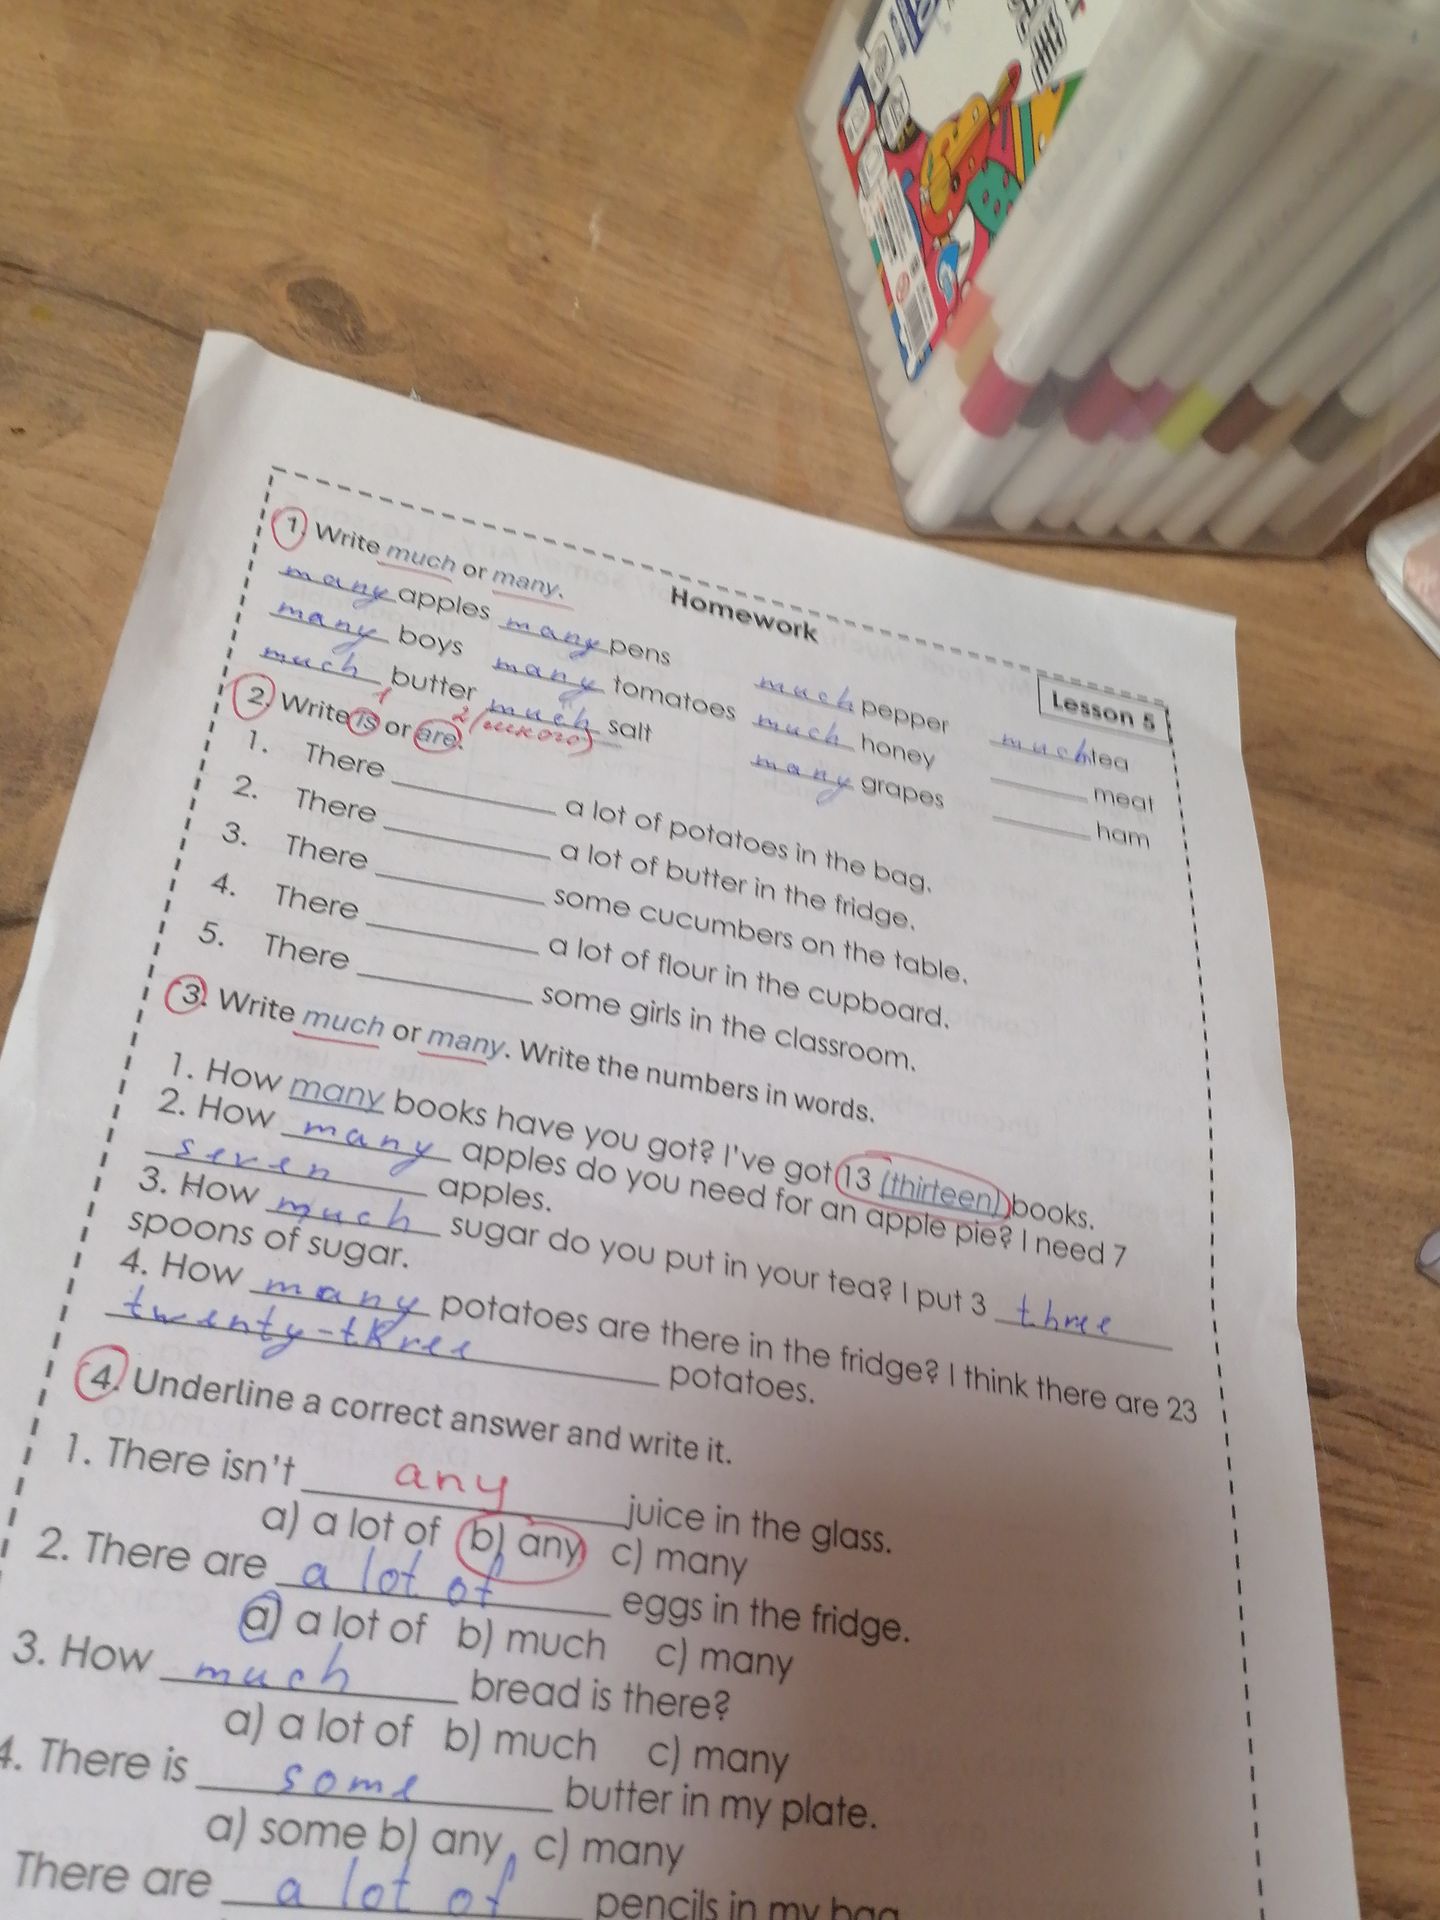 Homework
Lesson 5
1. Write much or many.
many apples many pens much pepper much tea
many boys many tomatoes much honey ____ meat
much butter much salt many grapes ____ ham
2. Write is or are.
1
2 (много)
1. There ____ a lot of potatoes in the bag.
2. There ____ a lot of butter in the fridge.
3. There ____ some cucumbers on the table.
4. There ____ a lot of flour in the cupboard.
5. There ____ some girls in the classroom.
3. Write much or many. Write the numbers in words.
1. How many books have you got? I've got 13 (thirteen) books.
2. How many apples do you need for an apple pie? I need 7
seven apples.
3. How much sugar do you put in your tea? I put 3 three
spoons of sugar.
4. How many potatoes are there in the fridge? I think there are 23
twenty-three potatoes.
4. Underline a correct answer and write it.
1. There isn't any juice in the glass.
a) a lot of b) any c) many
2. There are a lot of eggs in the fridge.
a) a lot of b) much c) many
3. How much bread is there?
a) a lot of b) much c) many
4. There is some butter in my plate.
a) some b) any c) many
There are a lot of pencils in my bag